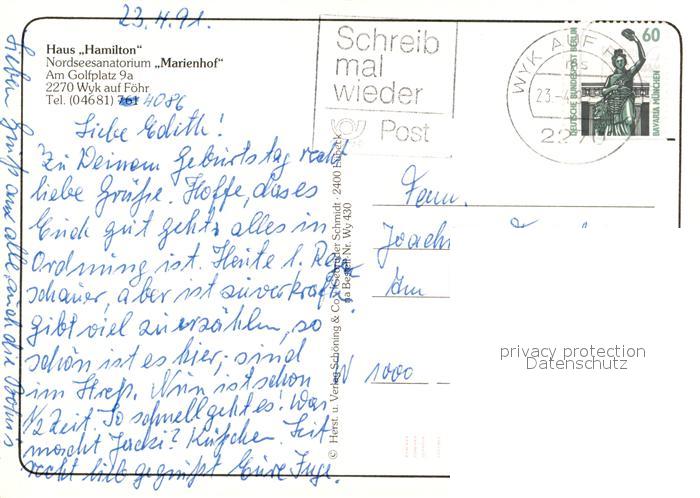 23.4.91.
Haus „Hamilton“
Nordseesanatorium „Marienhof“
Am Golfplatz 9a
2270 Wyk auf Föhr
Tel. (04681) 761 4086
Liebe Edith!
Zu Deinem Geburtstag recht
liebe Grüße. Hoffe, dass es
Euch gut geht, alles in
Ordnung ist. Heute 1. Regen
schauer, aber ist zu verkraften
gibt viel zu erzählen, so
schön ist es hier, sind
im Streß. Nun ist schon
1/2 Zeit. So schnell geht es! Was
macht Jacki? Küßchen. Seit
recht lieb gegrüßt Eure Inge.
Lieben Gruß an alle, auch die
© Herst. u. Verlag Schöning & Co + Gebrüder Schmidt · 2400 Lübeck
Bestell-Nr. Wy 430
Schreib
mal
wieder
Post
WYK AUF F
23.-4
2270
60
DEUTSCHE BUNDESPOST BERLIN
BAVARIA MÜNCHEN
Fam.
Joach
Am
W 1000
privacy protection
Datenschutz